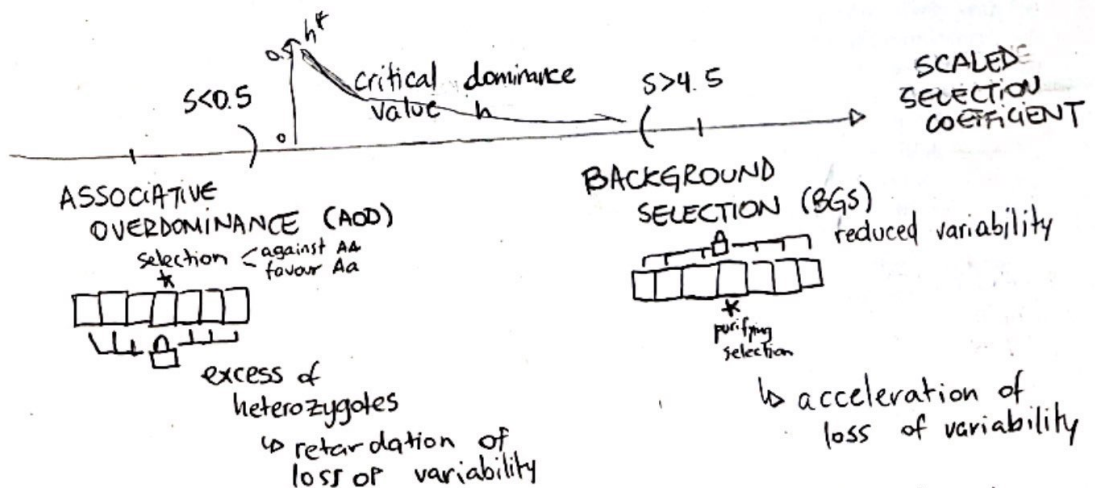 h*
0.5
0
critical dominance
value h
S<0.5
S>4.5
SCALED
SELECTION
COEFFICIENT
ASSOCIATIVE
OVERDOMINANCE (AOD)
selection < against AA
favour Aa
*
excess of
heterozygotes
↳ retardation of
loss of variability
BACKGROUND
SELECTION (BGS)
reduced variability
*
purifying
selection
↳ acceleration of
loss of variability